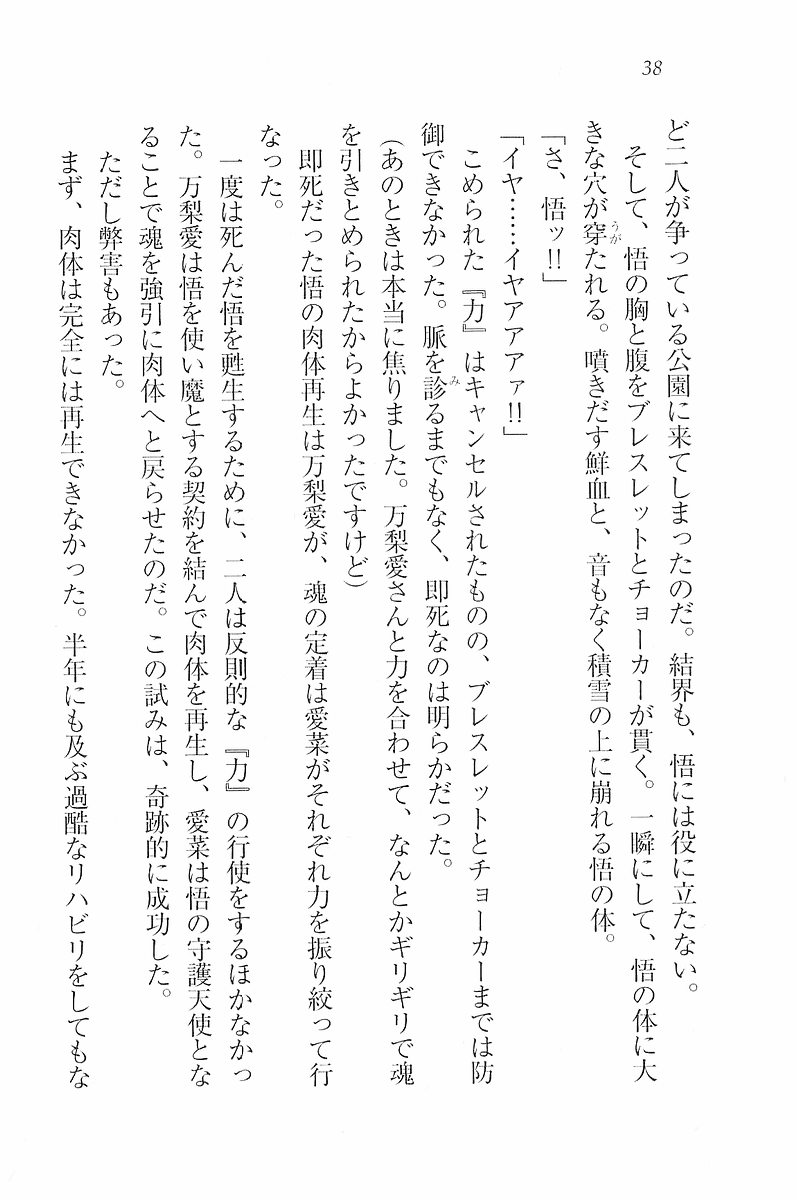 38
ど二人が争っている公園に来てしまったのだ。結界も、悟には役に立たない。
そして、悟の胸と腹をブレスレットとチョーカーが貫く。一瞬にして、悟の体に大
きな穴が穿たれる。噴きだす鮮血と、音もなく積雪の上に崩れる悟の体。
「さ、悟ッ!!」
「イヤ……イヤアアアァ!!」
こめられた『力』はキャンセルされたものの、ブレスレットとチョーカーまでは防
御できなかった。脈を診るまでもなく、即死なのは明らかだった。
(あのときは本当に焦りました。万梨愛さんと力を合わせて、なんとかギリギリで魂
を引きとめられたからよかったですけど)
即死だった悟の肉体再生は万梨愛が、魂の定着は愛菜がそれぞれ力を振り絞って行
なった。
一度は死んだ悟を甦生するために、二人は反則的な『力』の行使をするほかなかっ
た。万梨愛は悟を使い魔とする契約を結んで肉体を再生し、愛菜は悟の守護天使とな
ることで魂を強引に肉体へと戻らせたのだ。この試みは、奇跡的に成功した。
ただし弊害もあった。
まず、肉体は完全には再生できなかった。半年にも及ぶ過酷なリハビリをしてもな